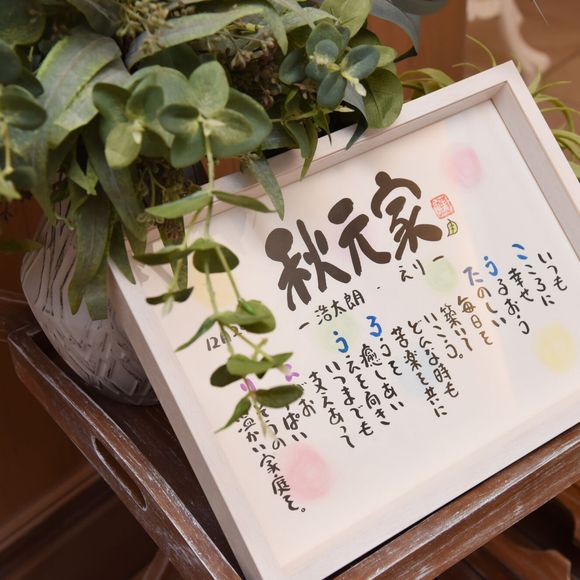 秋元家
浩太朗・えりー
いつも
こころに
幸せ
たのしい
毎日を
築いて
いこう。
どんな時も
苦楽を共に
ろうを癒しあい
うえを向き
いつまでも
支えあって
ぱい
りそうの
温かい家庭を。